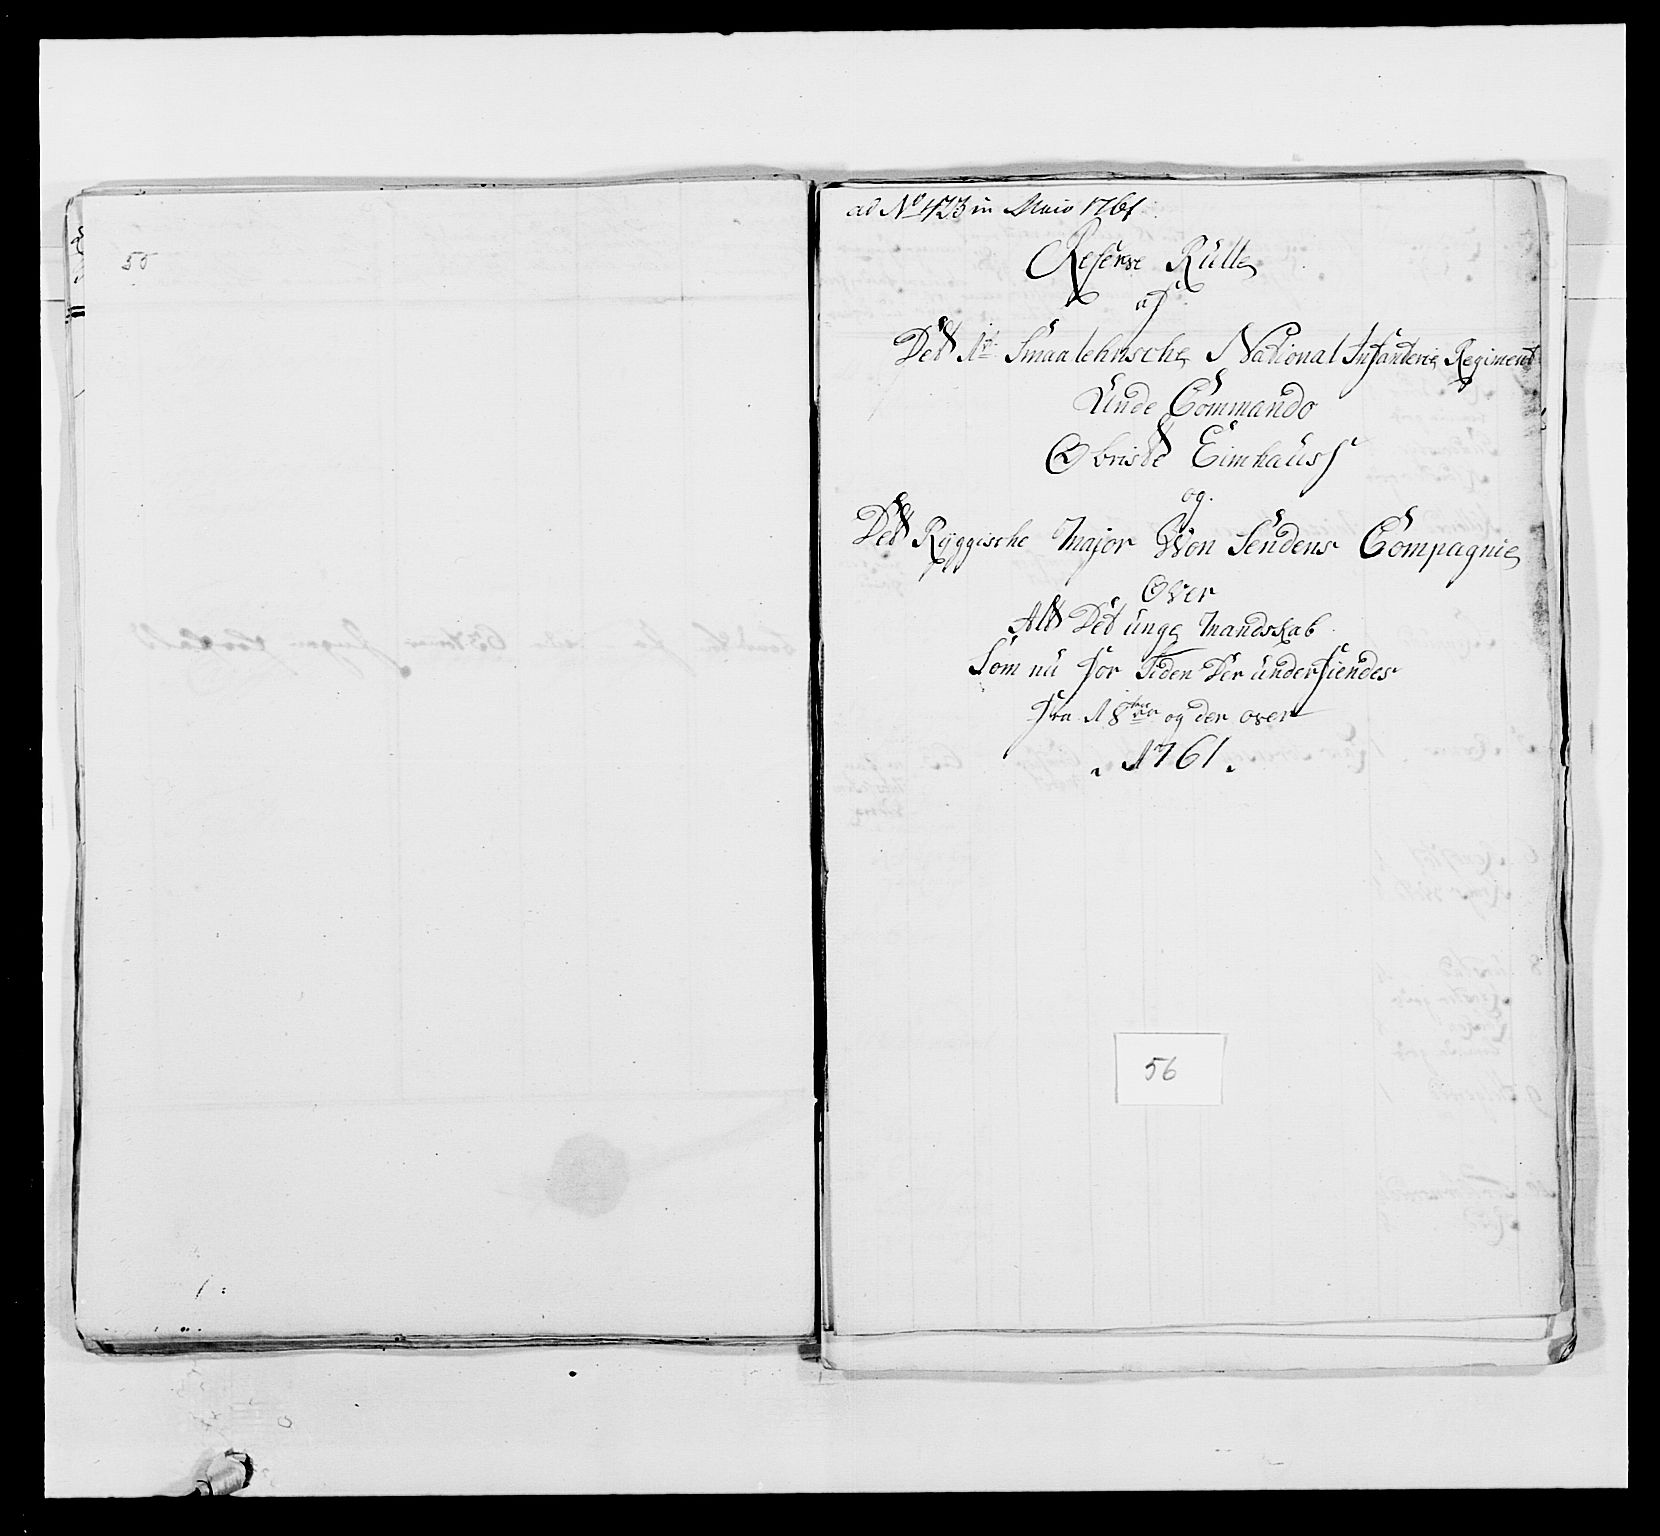 55
ad No 423 in Maio 1761
Reserve Rülle
af
Det 1te Smaalehnsche National Infanterie Regiment
Unde Commando
Obriste Eimhaüs
og
Det Ryggische Major Von Sendens Compagnie
Over
Alt Det unge Mandskab
Som nu for Tiden Der underfiendes
fra 18 og der over
1761.
56